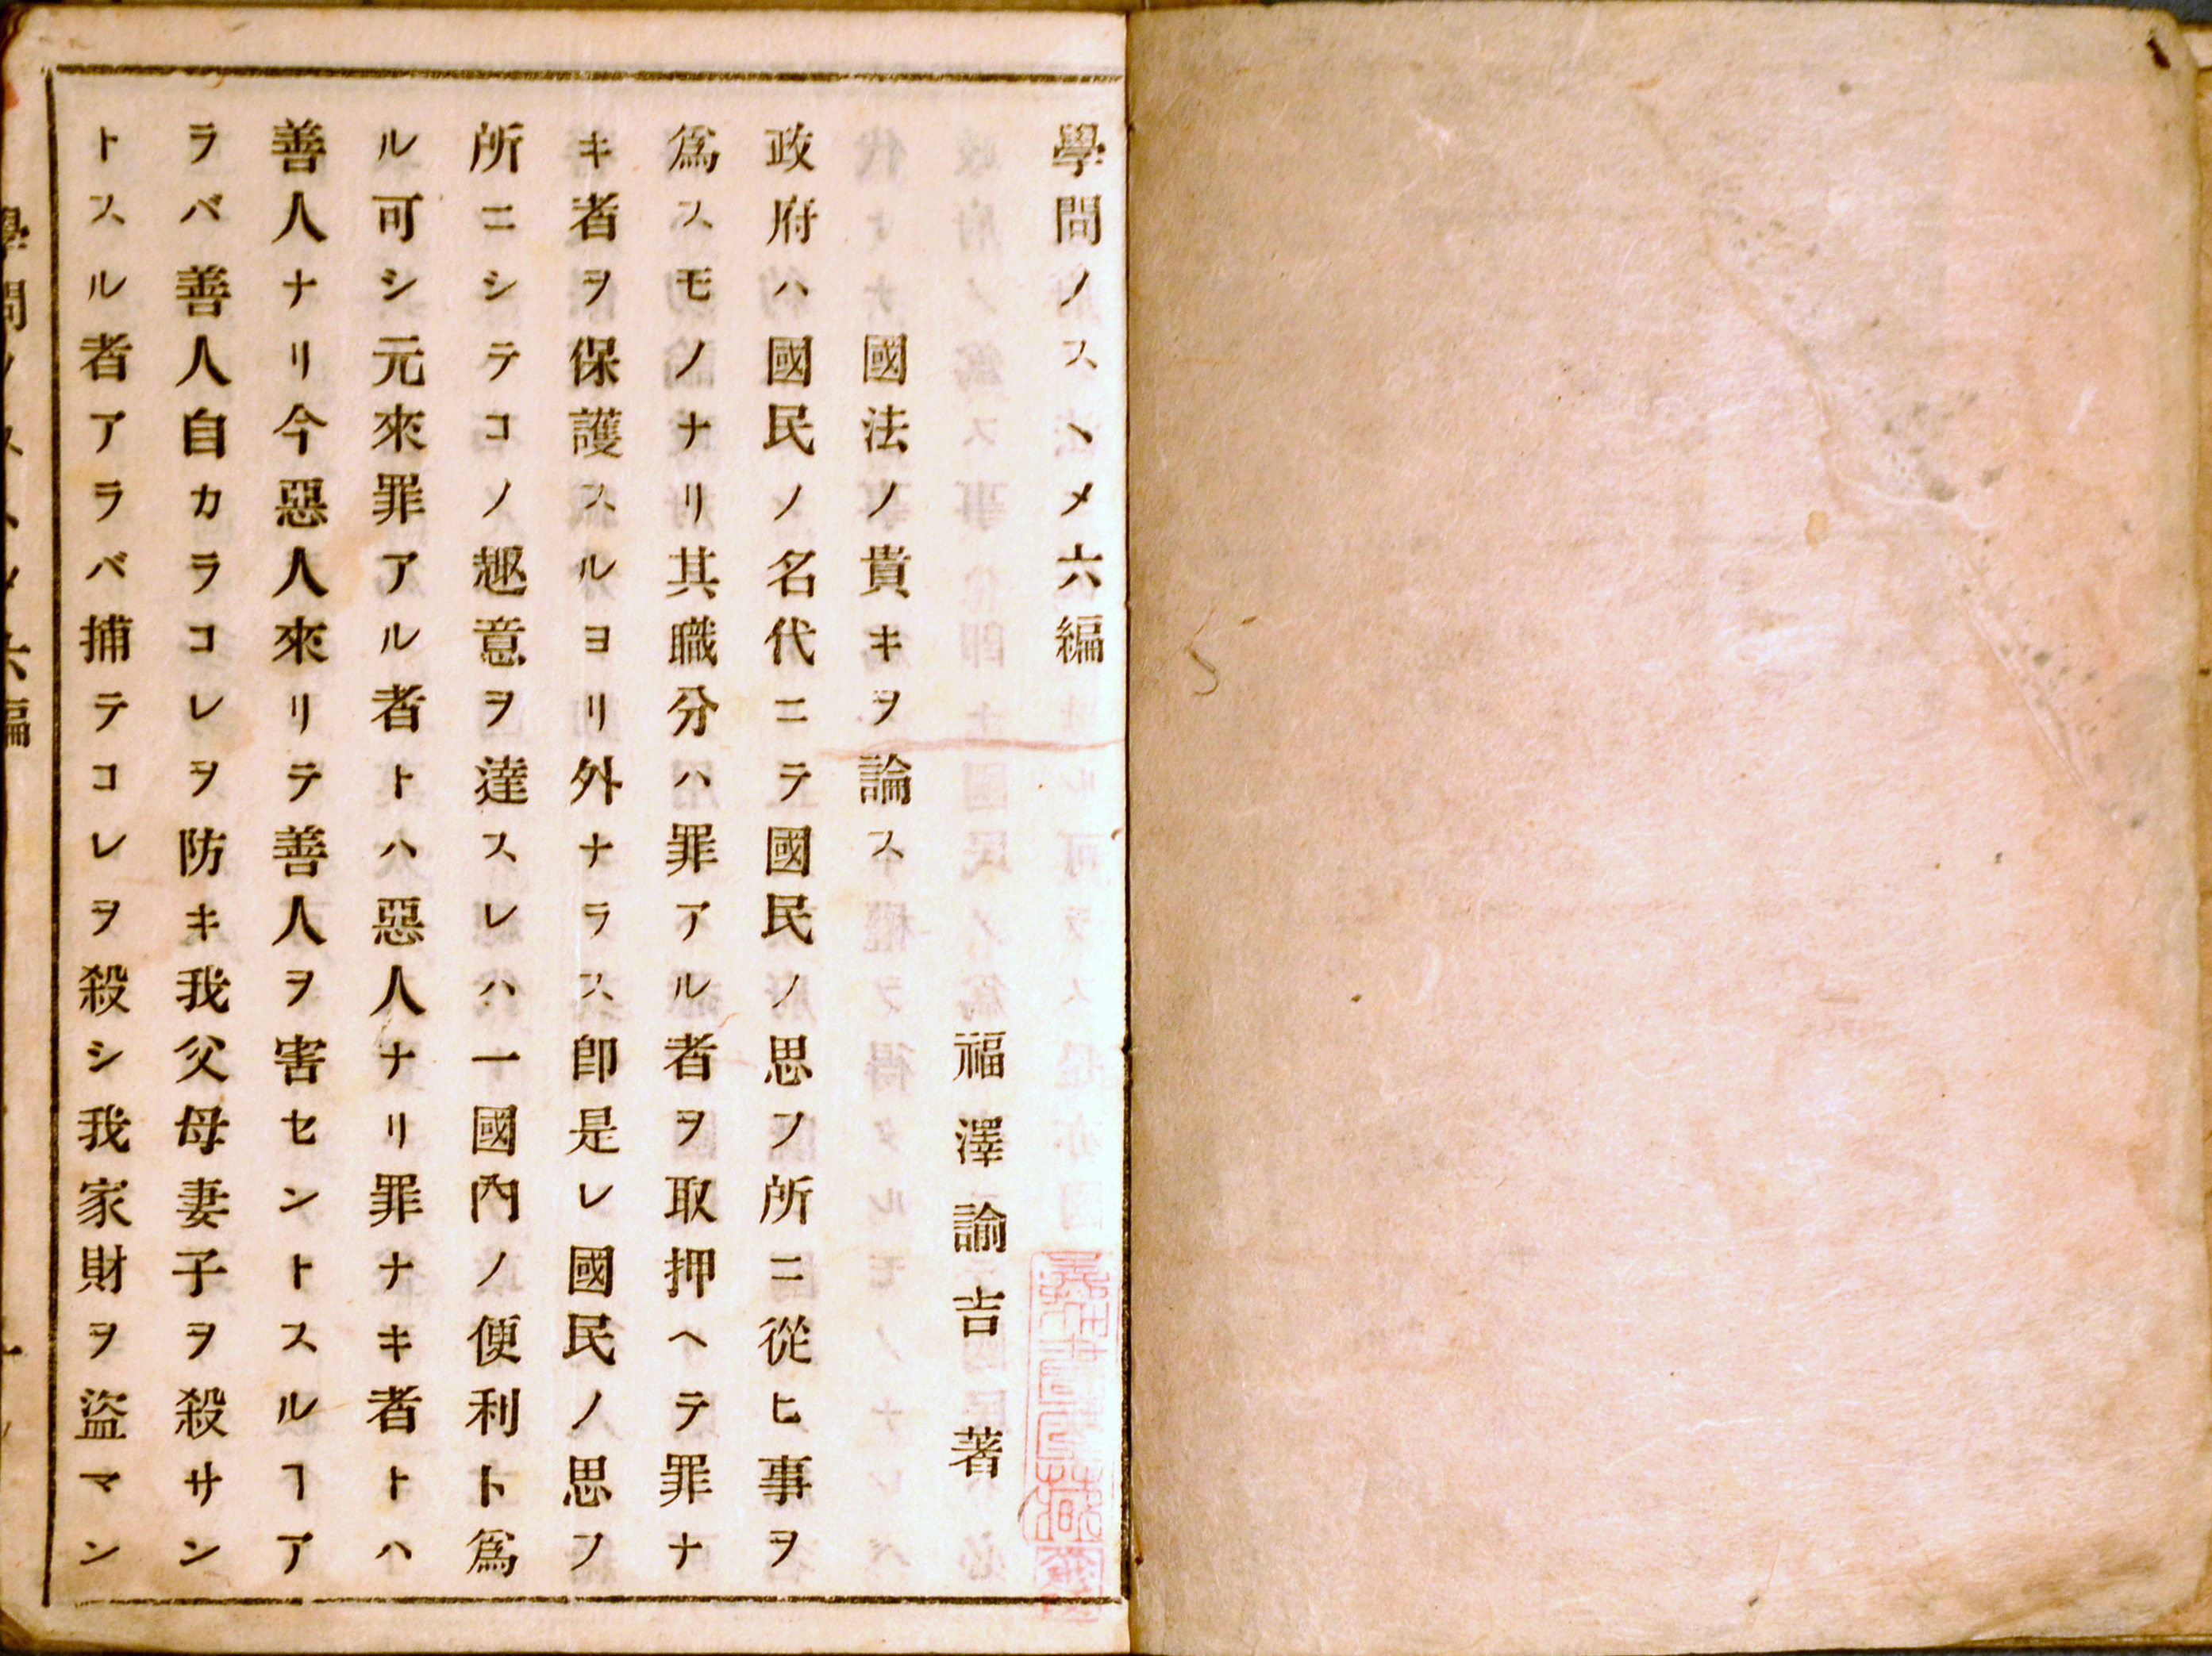 學問ノスヽメ六編
福澤諭吉 著
國法ノ貴キヲ論ス
政府ハ國民ノ名代ニテ國民ノ思フ所ニ從ヒ事ヲ
爲スモノナリ其職分ハ罪アル者ヲ取押ヘテ罪ナ
キ者ヲ保護スルヨリ外ナラス卽是レ國民ノ思フ
所ニシテコノ趣意ヲ達スレハ一國內ノ便利ト爲
ル可シ元來罪アル者トハ惡人ナリ罪ナキ者トハ
善人ナリ今惡人來リテ善人ヲ害セントスルヿア
ラバ善人自カラコレヲ防キ我父母妻子ヲ殺サン
トスル者アラバ捕テコレヲ殺シ我家財ヲ盜マン
學問ノスヽメ六編